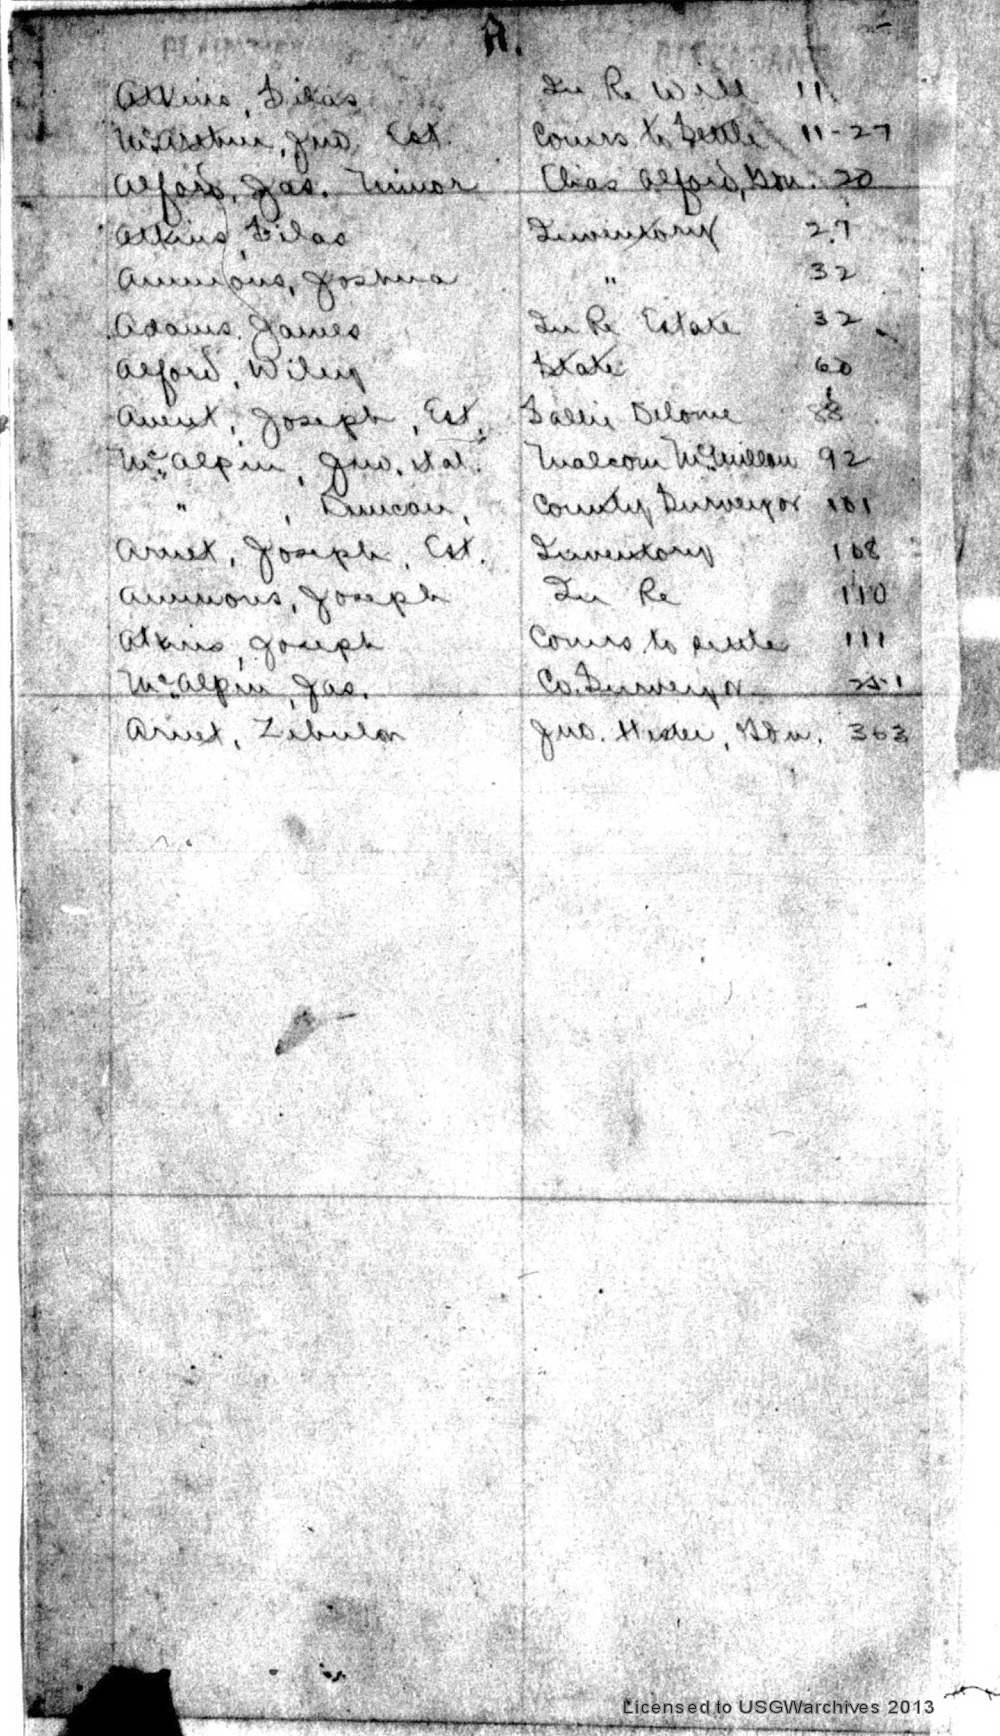 A.
Atkins, Silas In Re Will 11
McArthur, Jno. Est. Comrs to Settle 11-27
Alford, Jas. Minor Chas Alford, Gdn. 20
Atkins, Silas Inventory 27
Ammons, Joshua " 32
Adams, James In Re Estate 32
Alford, Wiley State 60
Avent, Joseph, Est. Sallie 88
McAlpin, Jno. Malcom McMillan 92
" , Duncan, County Surveyor 101
Arnet, Joseph, Est. Inventory 108
Ammons, Joseph In Re 110
Atkins, Joseph Comrs to settle 111
McAlpin, Jas. Co. Surveyor 251
Arnet, Zebulon Jno. Hester, Gdn. 363
Licensed to USGWarchives 2013